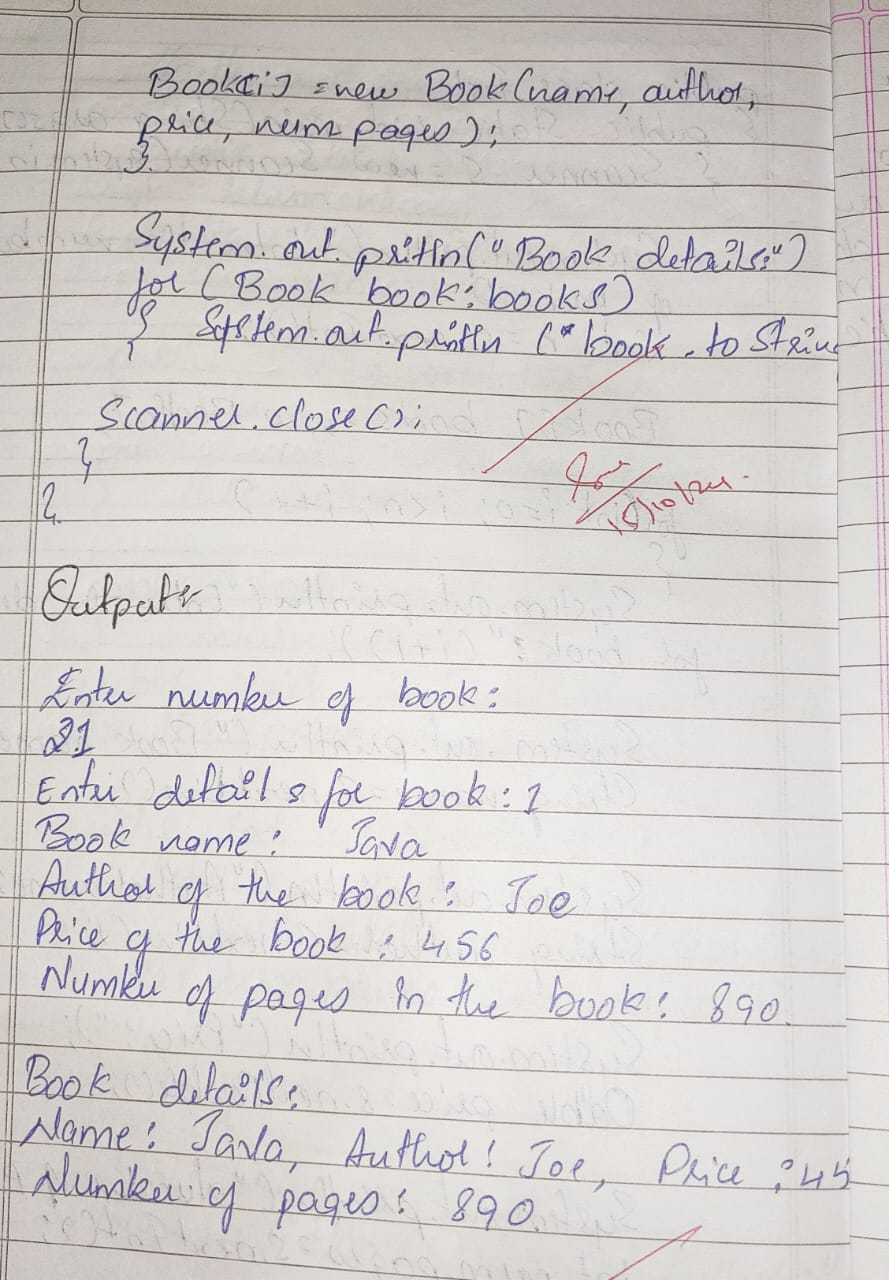 Book[i] = new Book(name, author,
price, num pages);
}
System.out.println("Book details:")
for (Book book: books)
{ System.out.println ("book.to Strin
Scanner.close();
}
}
Output:-
Enter number of book:
21
Enter details for book: 1
Book name: Java
Author of the book: Joe
Price of the book: 456
Number of pages in the book: 890.
Book details:
Name: Java, Author: Joe, Price: 45
Number of pages: 890.